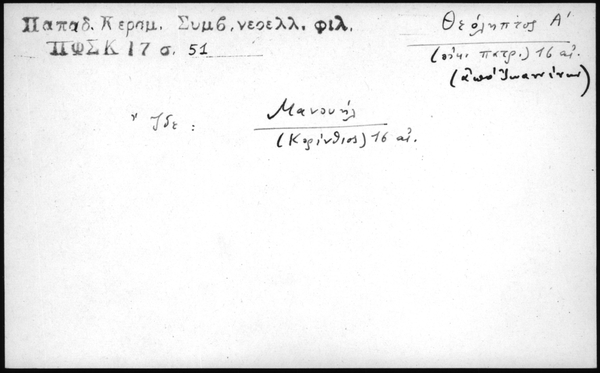 Παπαδ. Κεραμ. Συμβ. νεοελλ. φιλ.
ΠΦΣΚ 17 σ. 51
Θεόληπτος Α'
(οἰκ. πατρ.) 16 αἰ.
(ἀπό Ἰωαννίνων)
Ἴδε :
Μανουήλ
(Κορίνθιος) 16 αἰ.